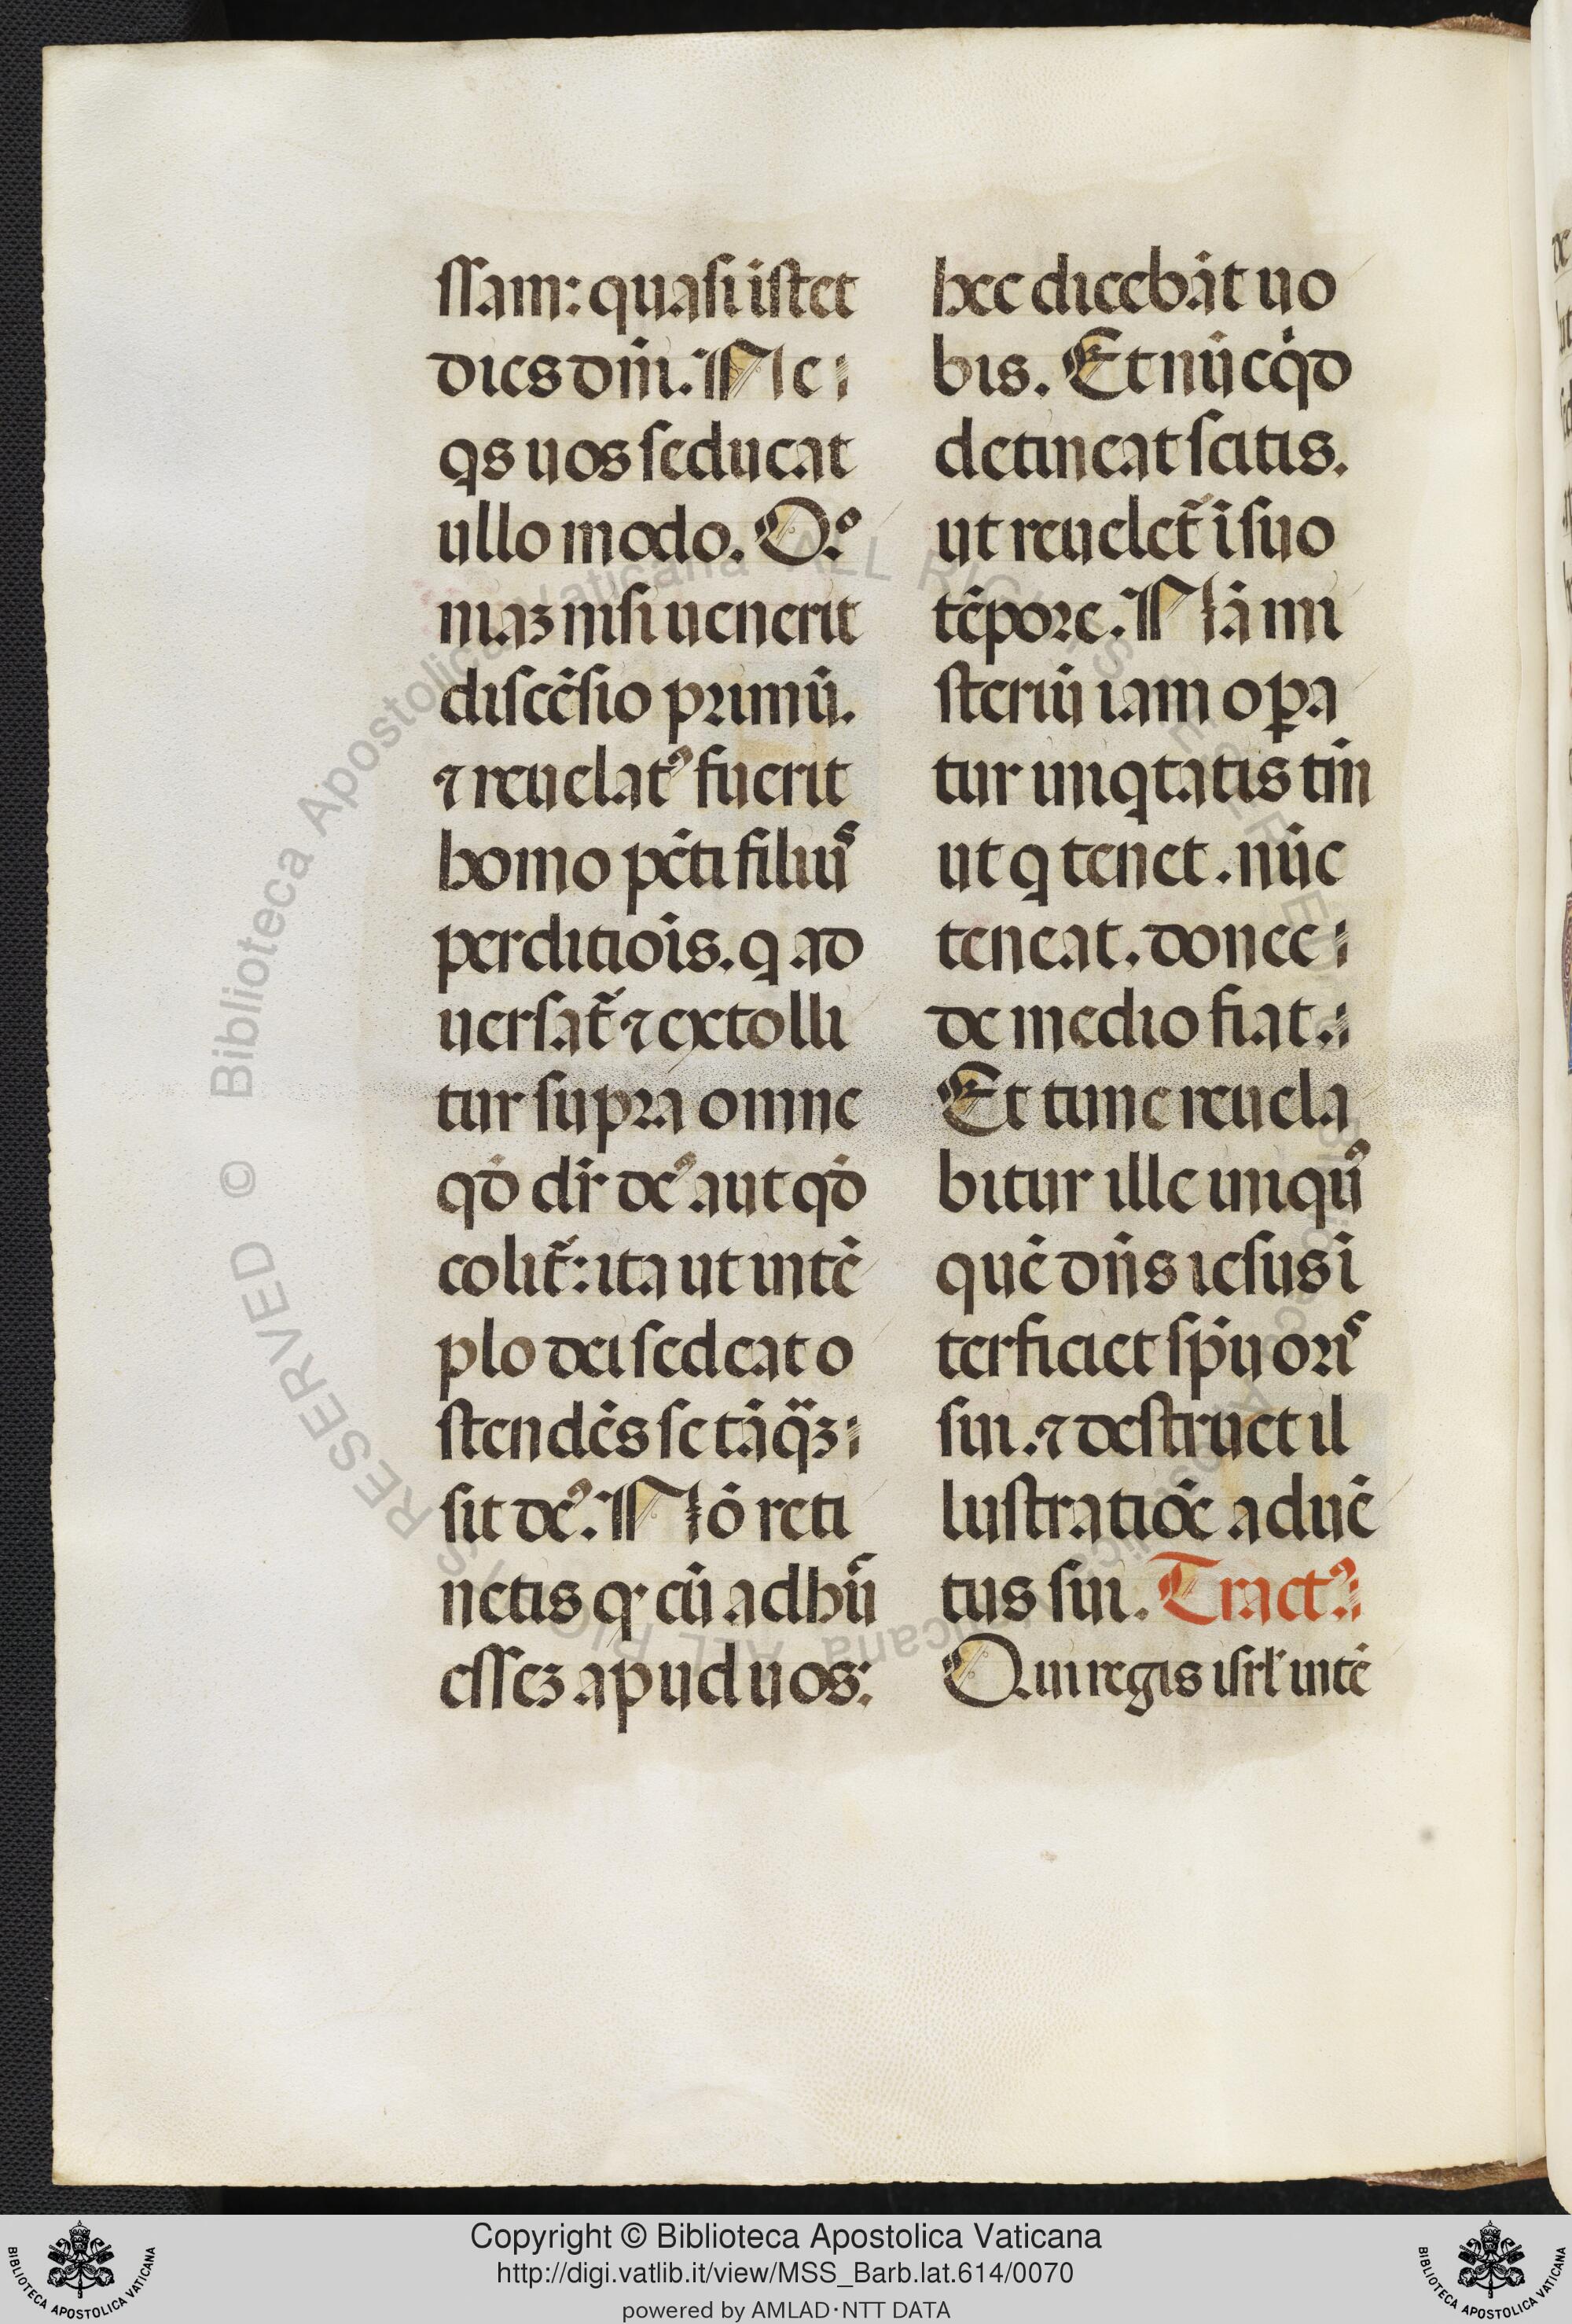 ſſam: quaſi iſtet
dies dn̄i. Ne
qs uos ſeducat
ullo modo. Qº
niaꝫ niſi uenerit
diſceſ̄ſio primū.
⁊ reuelatꝰ fuerit
homo pc̄ti filiuˢ
perditiōis. q ad
uerſat̃ ⁊ extolli
tur ſupra omne
qđ dr̄ deꝰ aut qđ
colit̃: ita ut in tē
plo dei ſedeat o
ſtendēs ſe tāqꝫ
ſit deꝰ. Nō reti
netis qꝛ cū adhuᶜ
eſſeꝫ apud uos:
hec dicebāt uo
bis. Et nūc qͥd
detineat ſcitis.
ut reuelet̃ ī ſuo
tēpore. Nā mi
ſteriū iam oꝑa
tur iniqtatis tm̄
ut q tenet. nūc
teneat. donec
de medio fiat.
Et tunc reuela
bitur ille iniquꝰ
quē dn̄s ieſus ī
terficiet ſpū oriˢ
ſui. ⁊ deſtruet il
luſtratiōe aduē
tus ſui. Tractꝰ
Qui regis iſrl̄ intē
RESERVED © Biblioteca Apostolica Vaticana ALL RIGHTS RESERVED
Copyright © Biblioteca Apostolica Vaticana
http://digi.vatlib.it/view/MSS_Barb.lat.614/0070
powered by AMLAD·NTT DATA
BIBLIOTECA APOSTOLICA VATICANA
BIBLIOTECA APOSTOLICA VATICANA